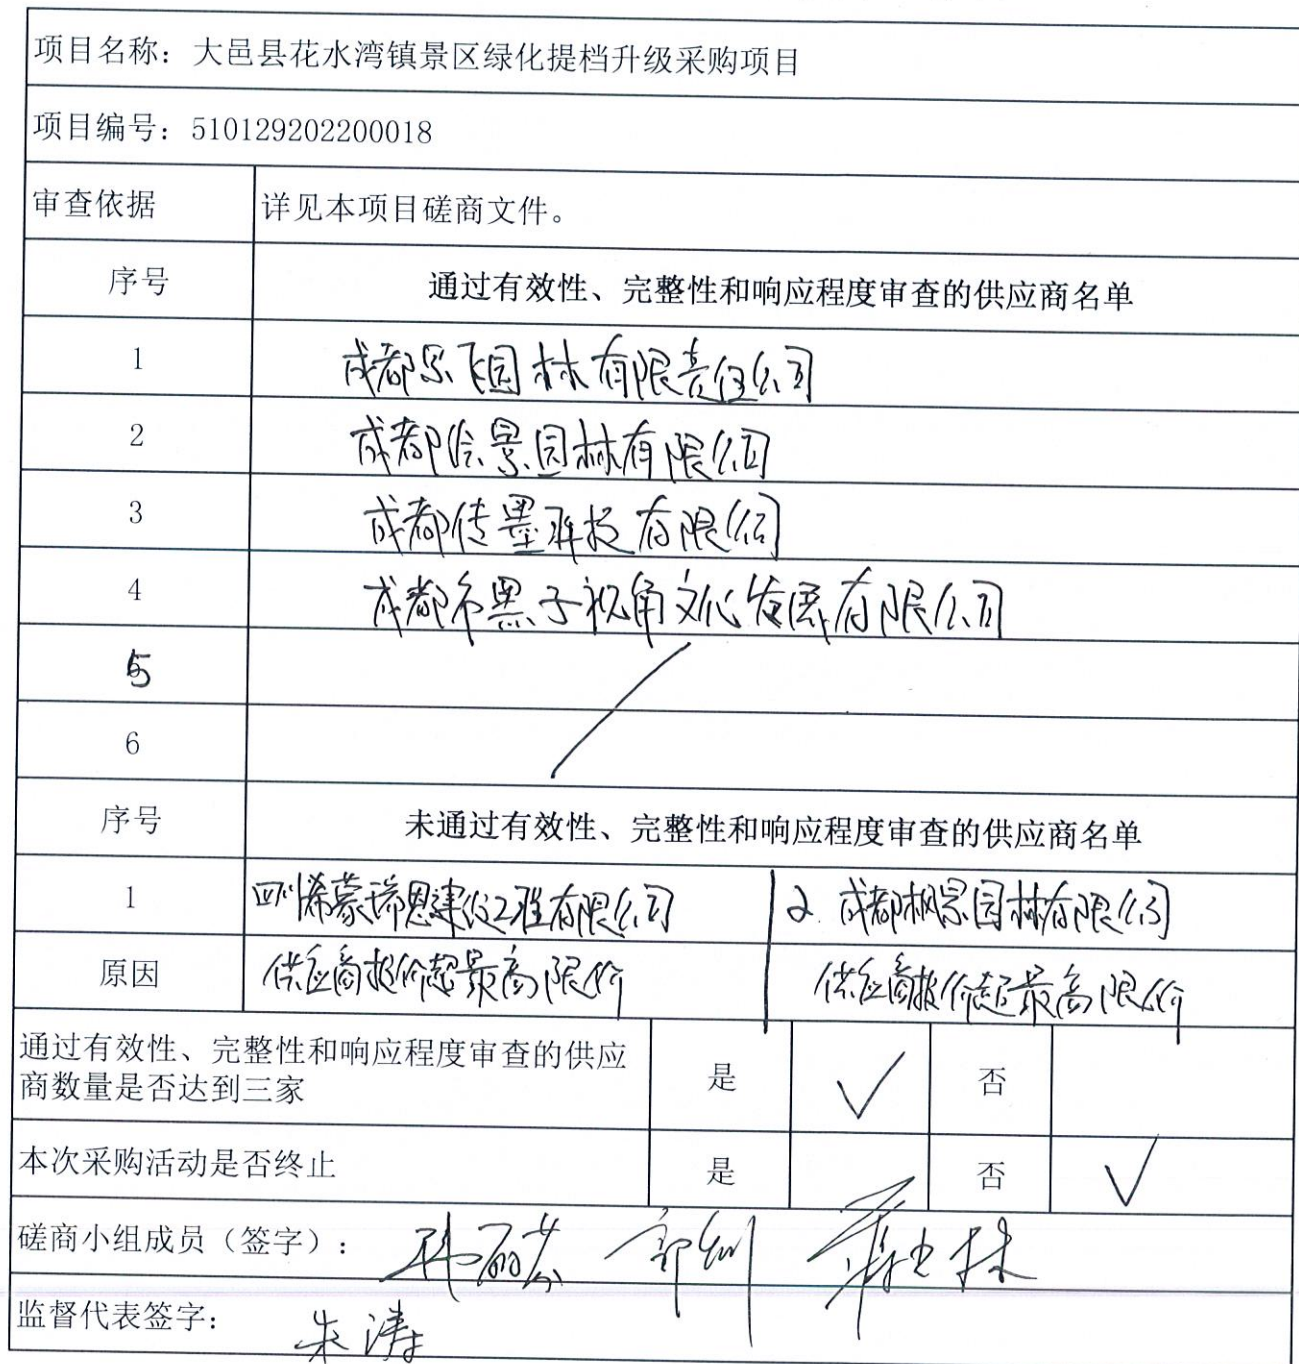 项目名称：大邑县花水湾镇景区绿化提档升级采购项目
项目编号：510129202200018
审查依据 详见本项目磋商文件。
序号 通过有效性、完整性和响应程度审查的供应商名单
1 成都 园林有限责任公司
2 成都绘景园林有限公司
3 成都传墨科技有限公司
4 成都市黑子视角文化发展有限公司
5
6
序号 未通过有效性、完整性和响应程度审查的供应商名单
1 四川蒙瑞恩建设工程有限公司 2. 成都枫景园林有限公司
原因 供应商报价超最高限价 供应商报价超最高限价
通过有效性、完整性和响应程度审查的供应
商数量是否达到三家 是 √ 否
本次采购活动是否终止 是 否 √
磋商小组成员（签字）：
监督代表签字： 朱涛